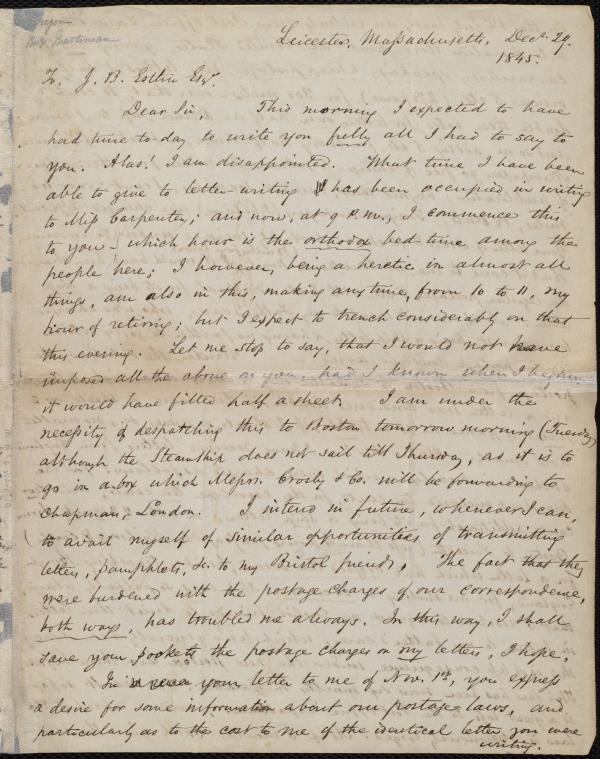 Oregon
Miss Martineau
Leicester, Massachusetts, Decr. 29,
1845.
To J. B. Estlin Esqr.
Dear Sir, This morning I expected to have
had time to-day to write you fully all I had to say to
you. Alas! I am disappointed. What time I have been
able to give to letter-writing has been occupied in writing
to Miss Carpenter; and now, at 9 P.M., I commence this
to you – which hour is the orthodox bed-time among the
people here; I however, being a heretic in almost all
things, am also in this, making any time, from 10 to 11, my
hour of retiring; but I expect to trench considerably on that
this evening. Let me stop to say, that I would not have
imposed all the above on you, had I known when I began
it would have filled half a sheet. I am under the
necessity of despatching this to Boston tomorrow morning (Tuesday)
although the Steamship does not sail till Thursday, as it is to
go in a box which Messrs. Crosby & Co. will be forwarding to
Chapman, London. I intend in future, whenever I can,
to avail myself of similar opportunities of transmitting
letters, pamphlets, &c. to my Bristol friends. The fact that they
were burdened with the postage charges of our correspondence,
both ways, has troubled me always. In this way, I shall
save your pockets the postage charges on my letters, I hope.
In your letter to me of Nov. 1st, you express
a desire for some information about our postage laws, and
particularly as to the cost to me of the identical letter you were
writing.